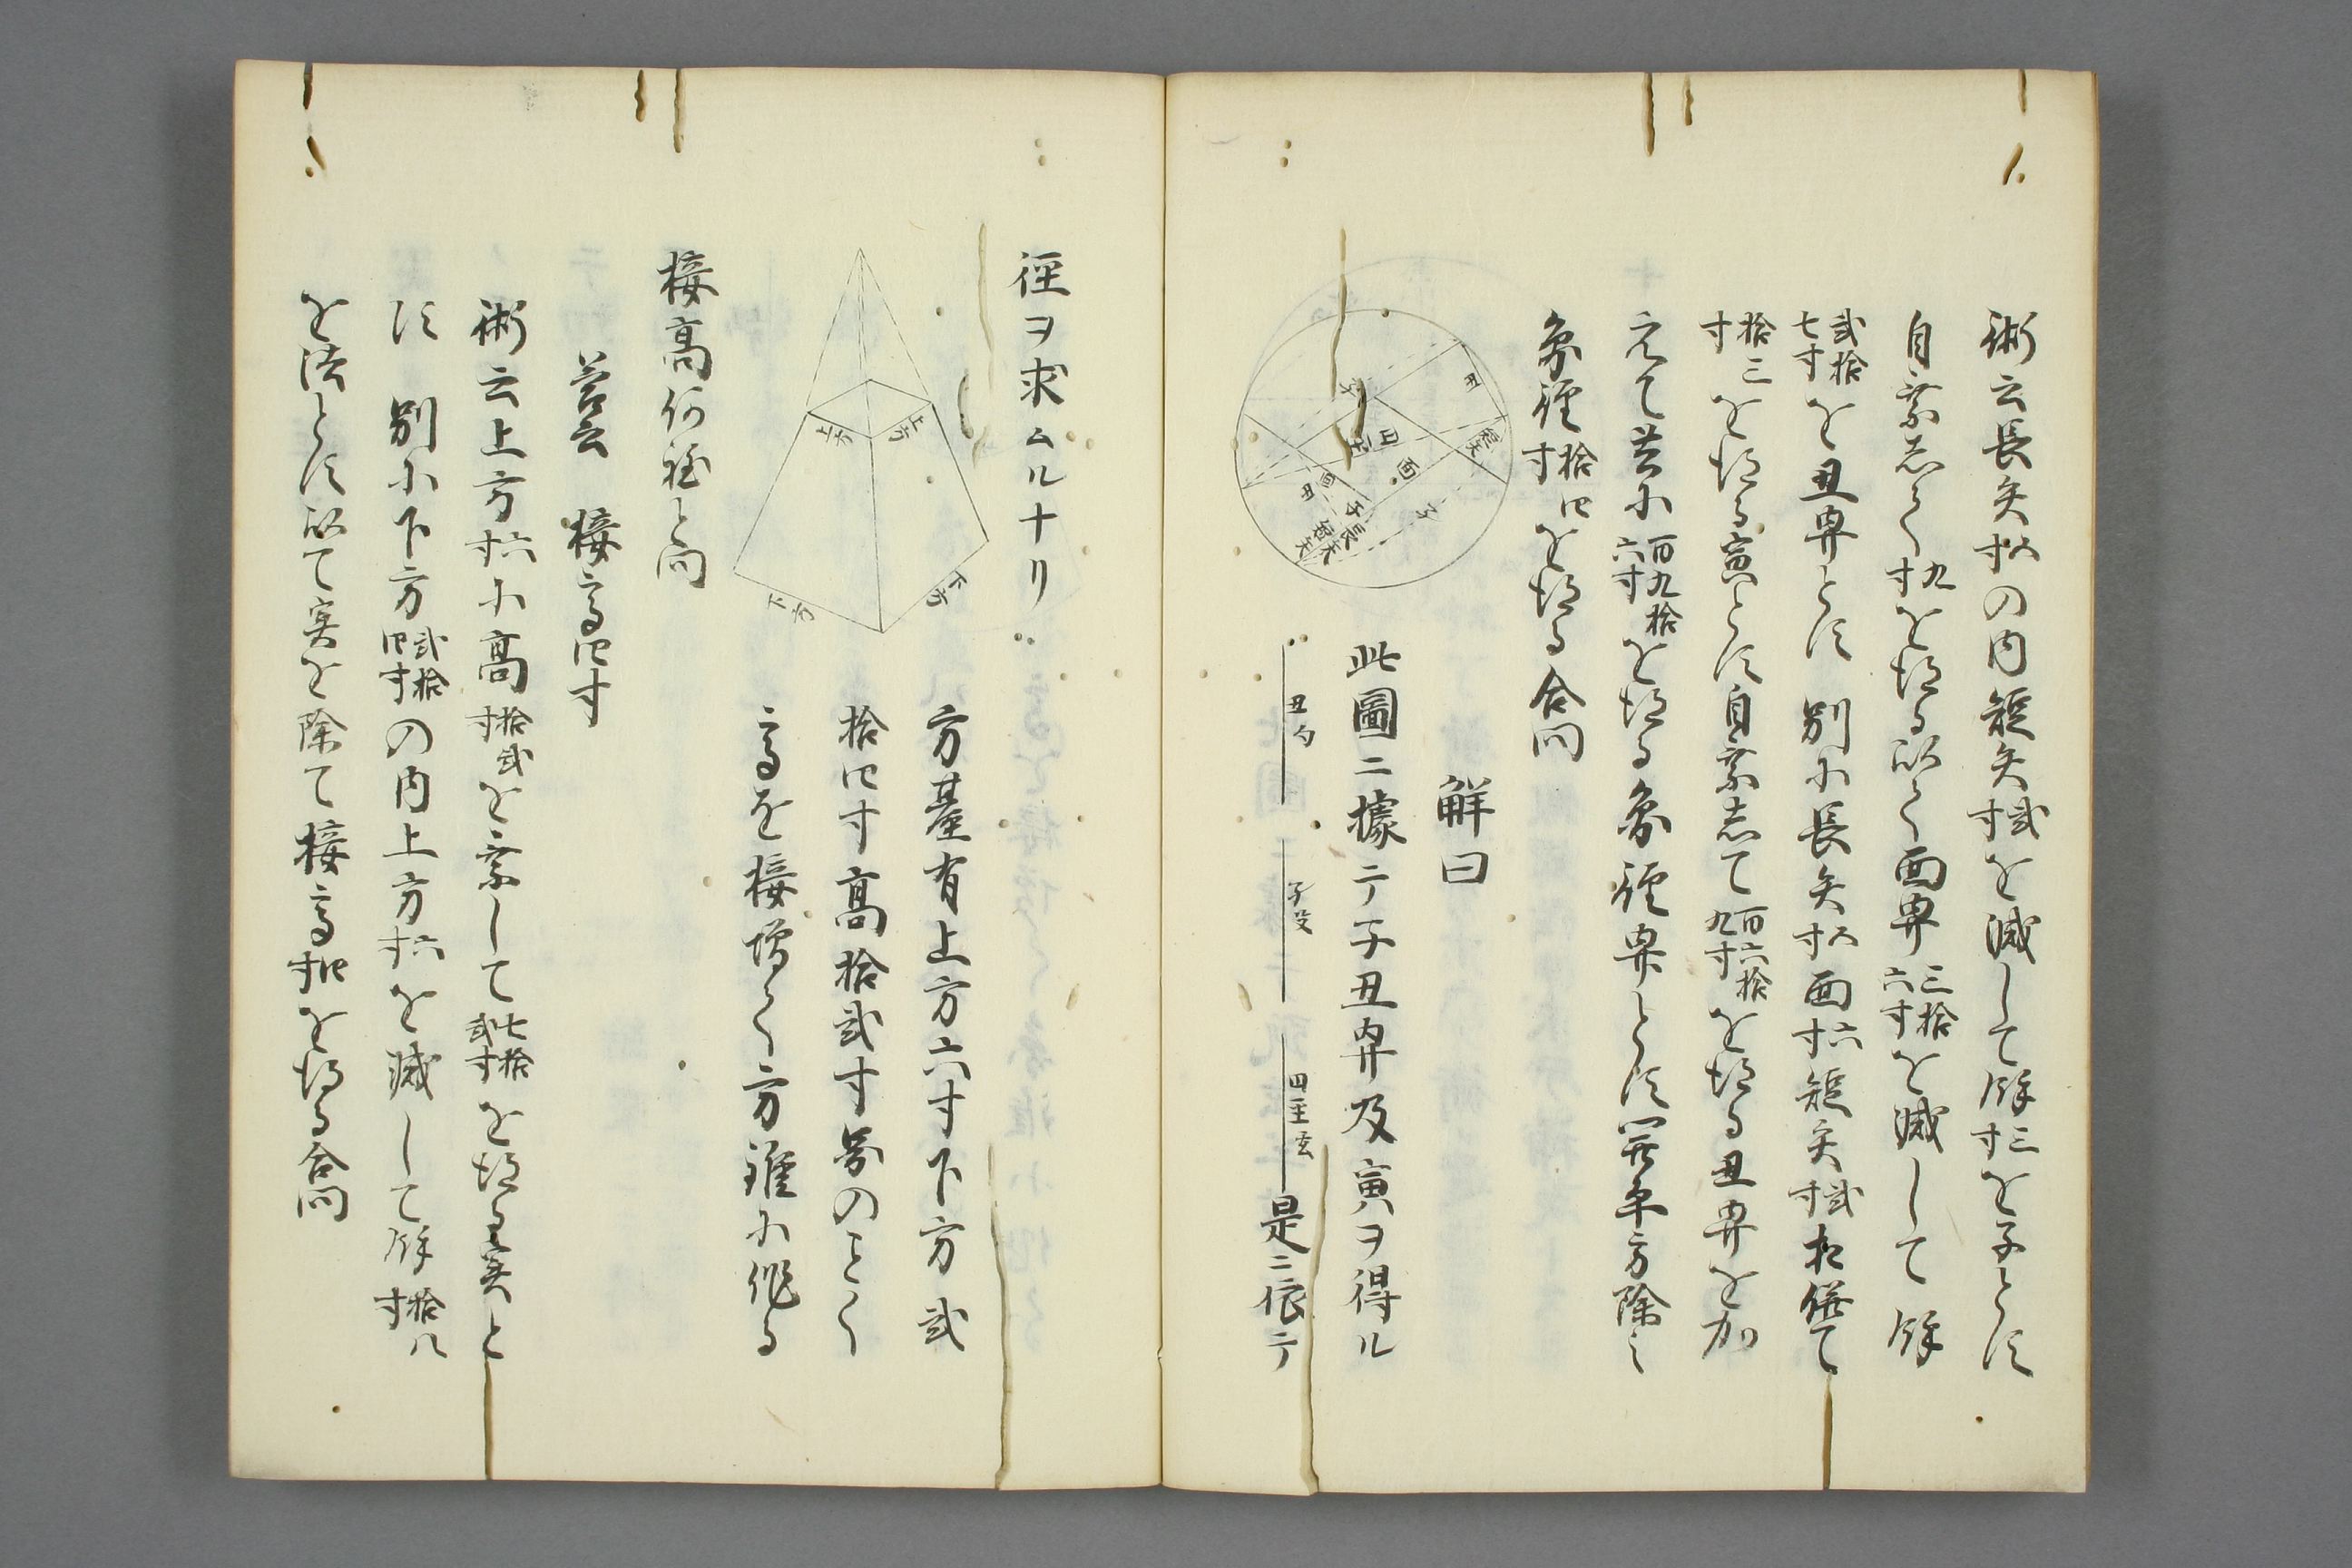 術云長矢五寸の内短矢弐寸を減して餘三寸を子とす
自乗して九寸を得る以て面冪三拾六寸を減して餘
弐拾七寸を丑冪とす 別に長矢五寸面六寸短矢弐寸相併て
拾三寸を得る寅とす自乗して百六拾九寸を得る丑冪を加
えて共に百九拾六寸を得る象径冪とす開平方除之
象径拾四寸を得る合問
解曰
此圖ニ據テ子丑冪及寅ヲ得ル
丑勾
子殳
四至玄
是ニ依テ
甲
面
子
短矢
長矢
径ヲ求ムルナリ
上方
上方
下方
下方
方䑓有上方六寸下方弐
拾四寸高拾弐寸図のことく
高を接増て方錐に作る
接高何程と問
答云 接高四寸
術云上方六寸に高拾弐寸を乗して七拾弐寸を得る実と
す 別に下方弐拾四寸の内上方六寸を減して餘拾八寸
を法とす以て実を除て接高四寸を得る合問